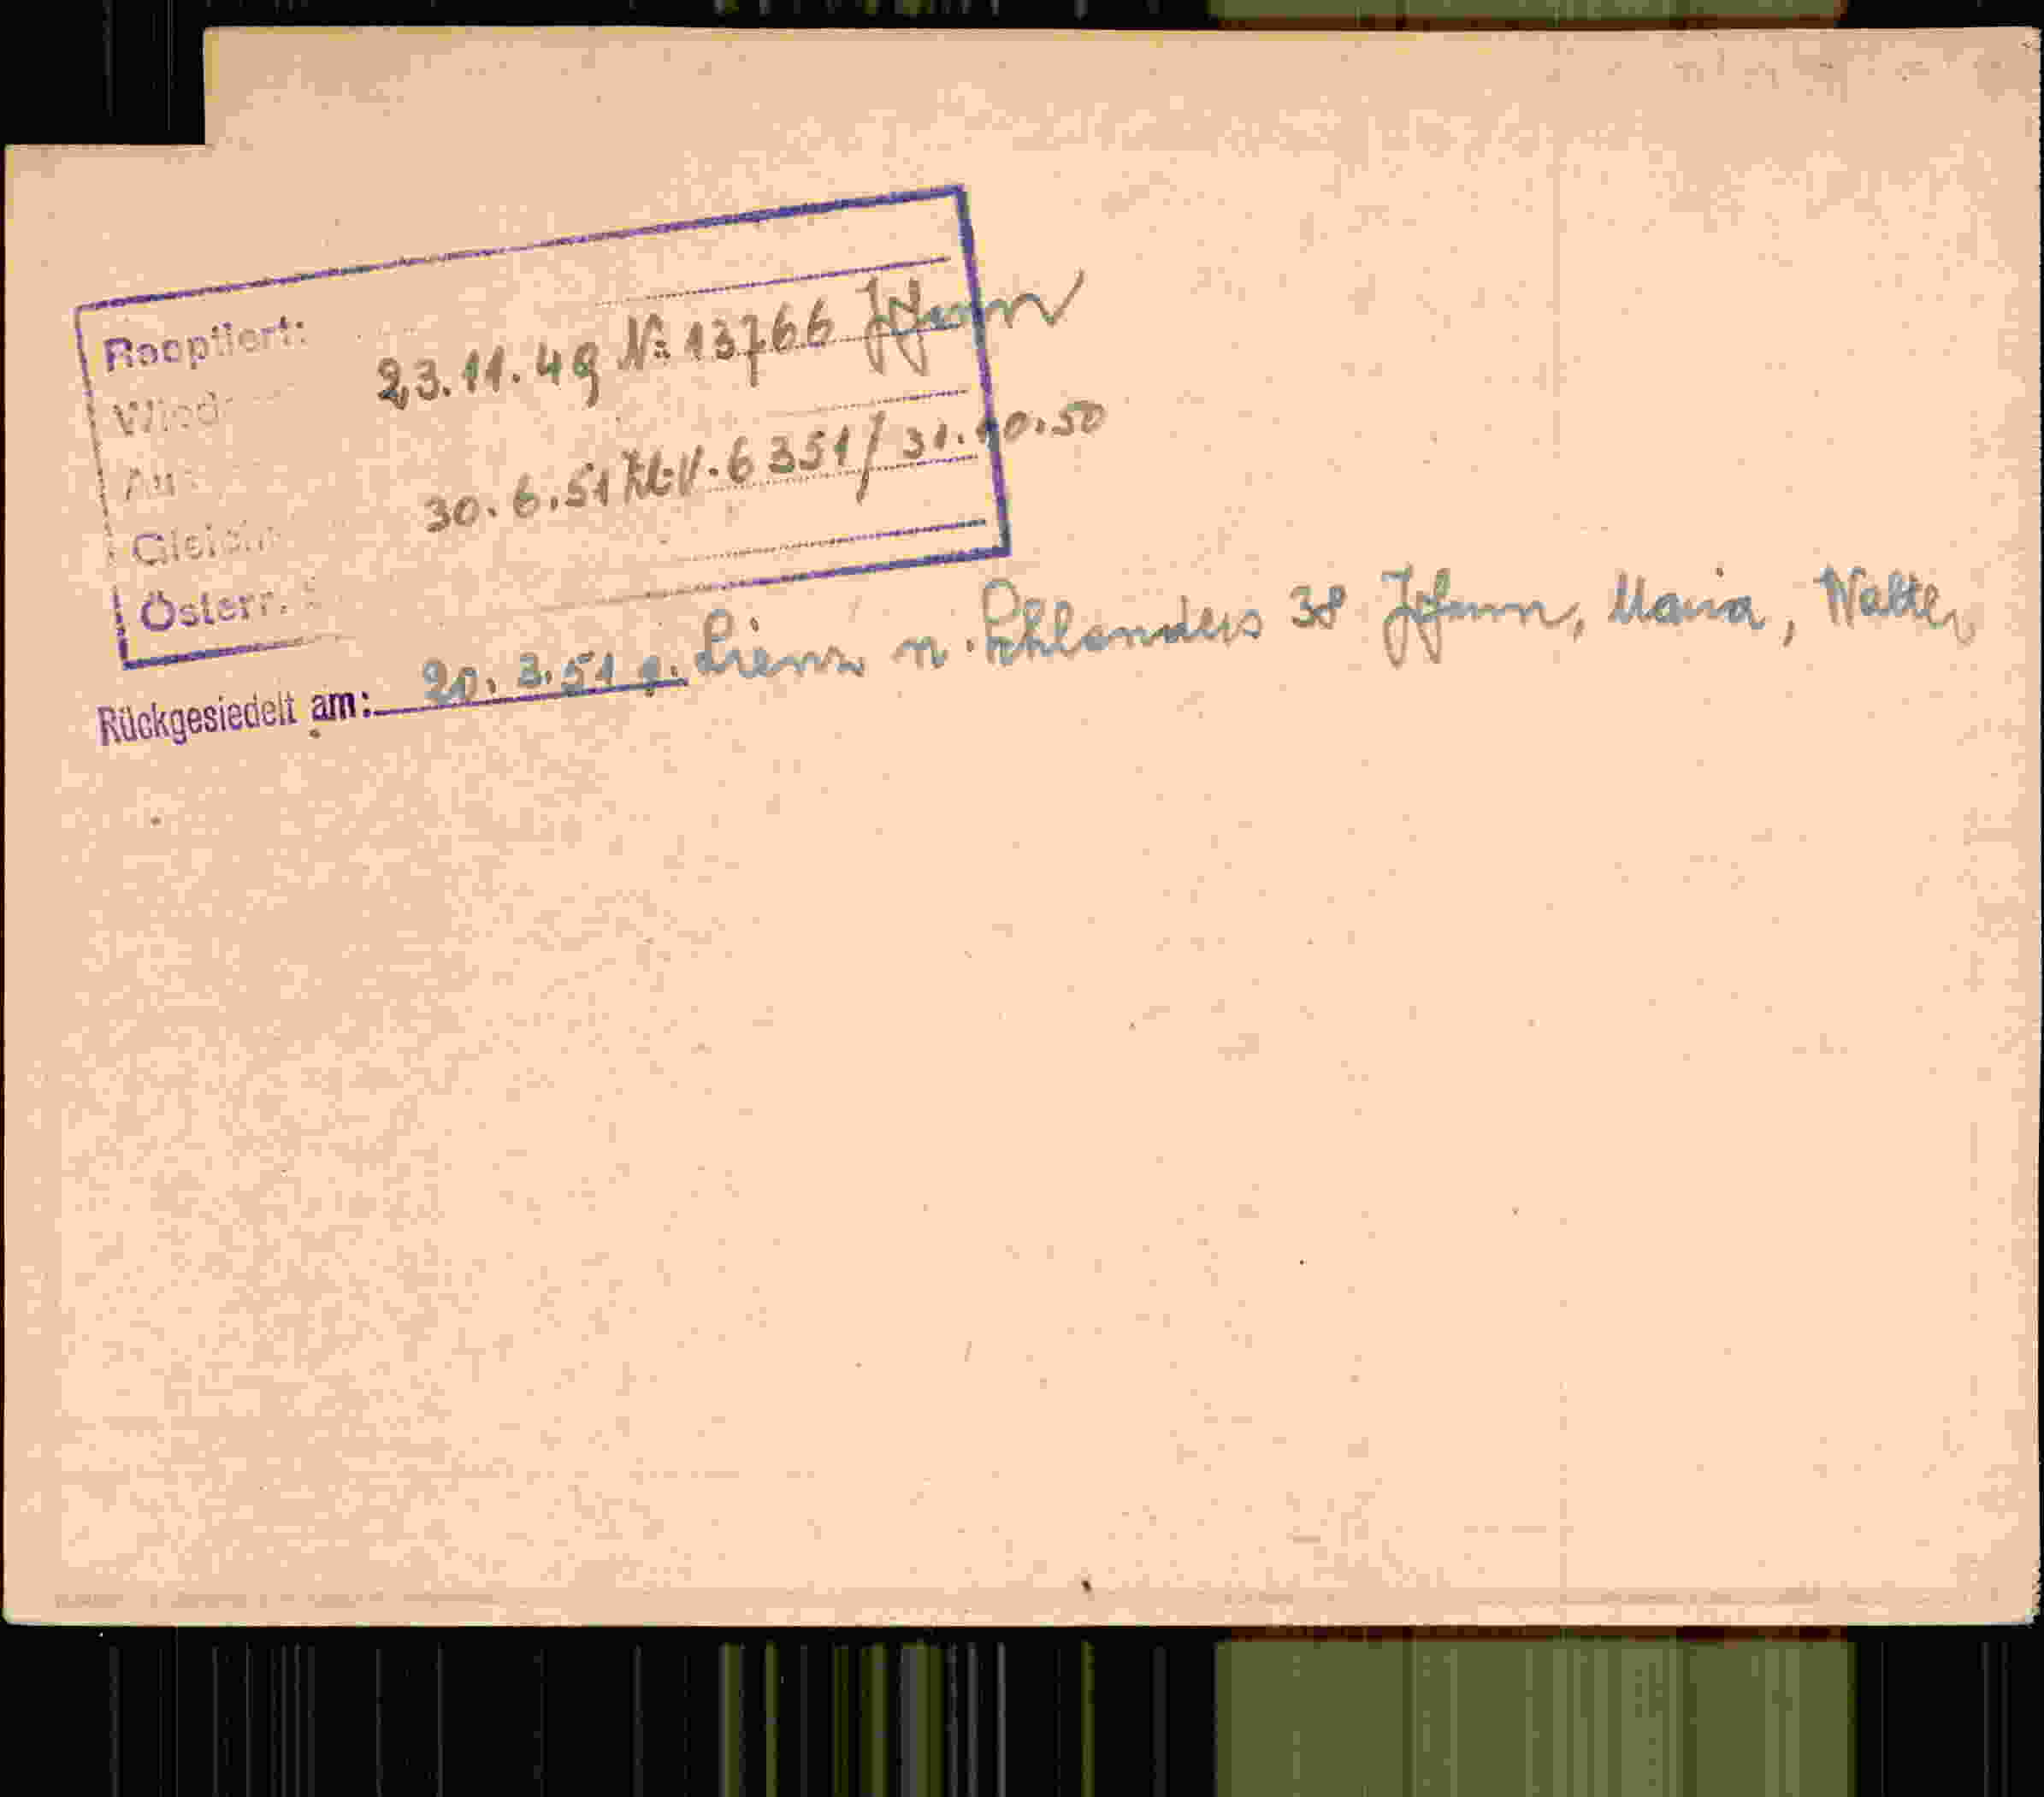 Reoptiert:
23.11.49 Nr. 13766 Johann
Wied
30.6.51 6351/31.10.50
Gleich
Österr.
Rückgesiedelt am: 20.3.51 v. Lienz n. Schlanders 38 Johann, Maria, Walter